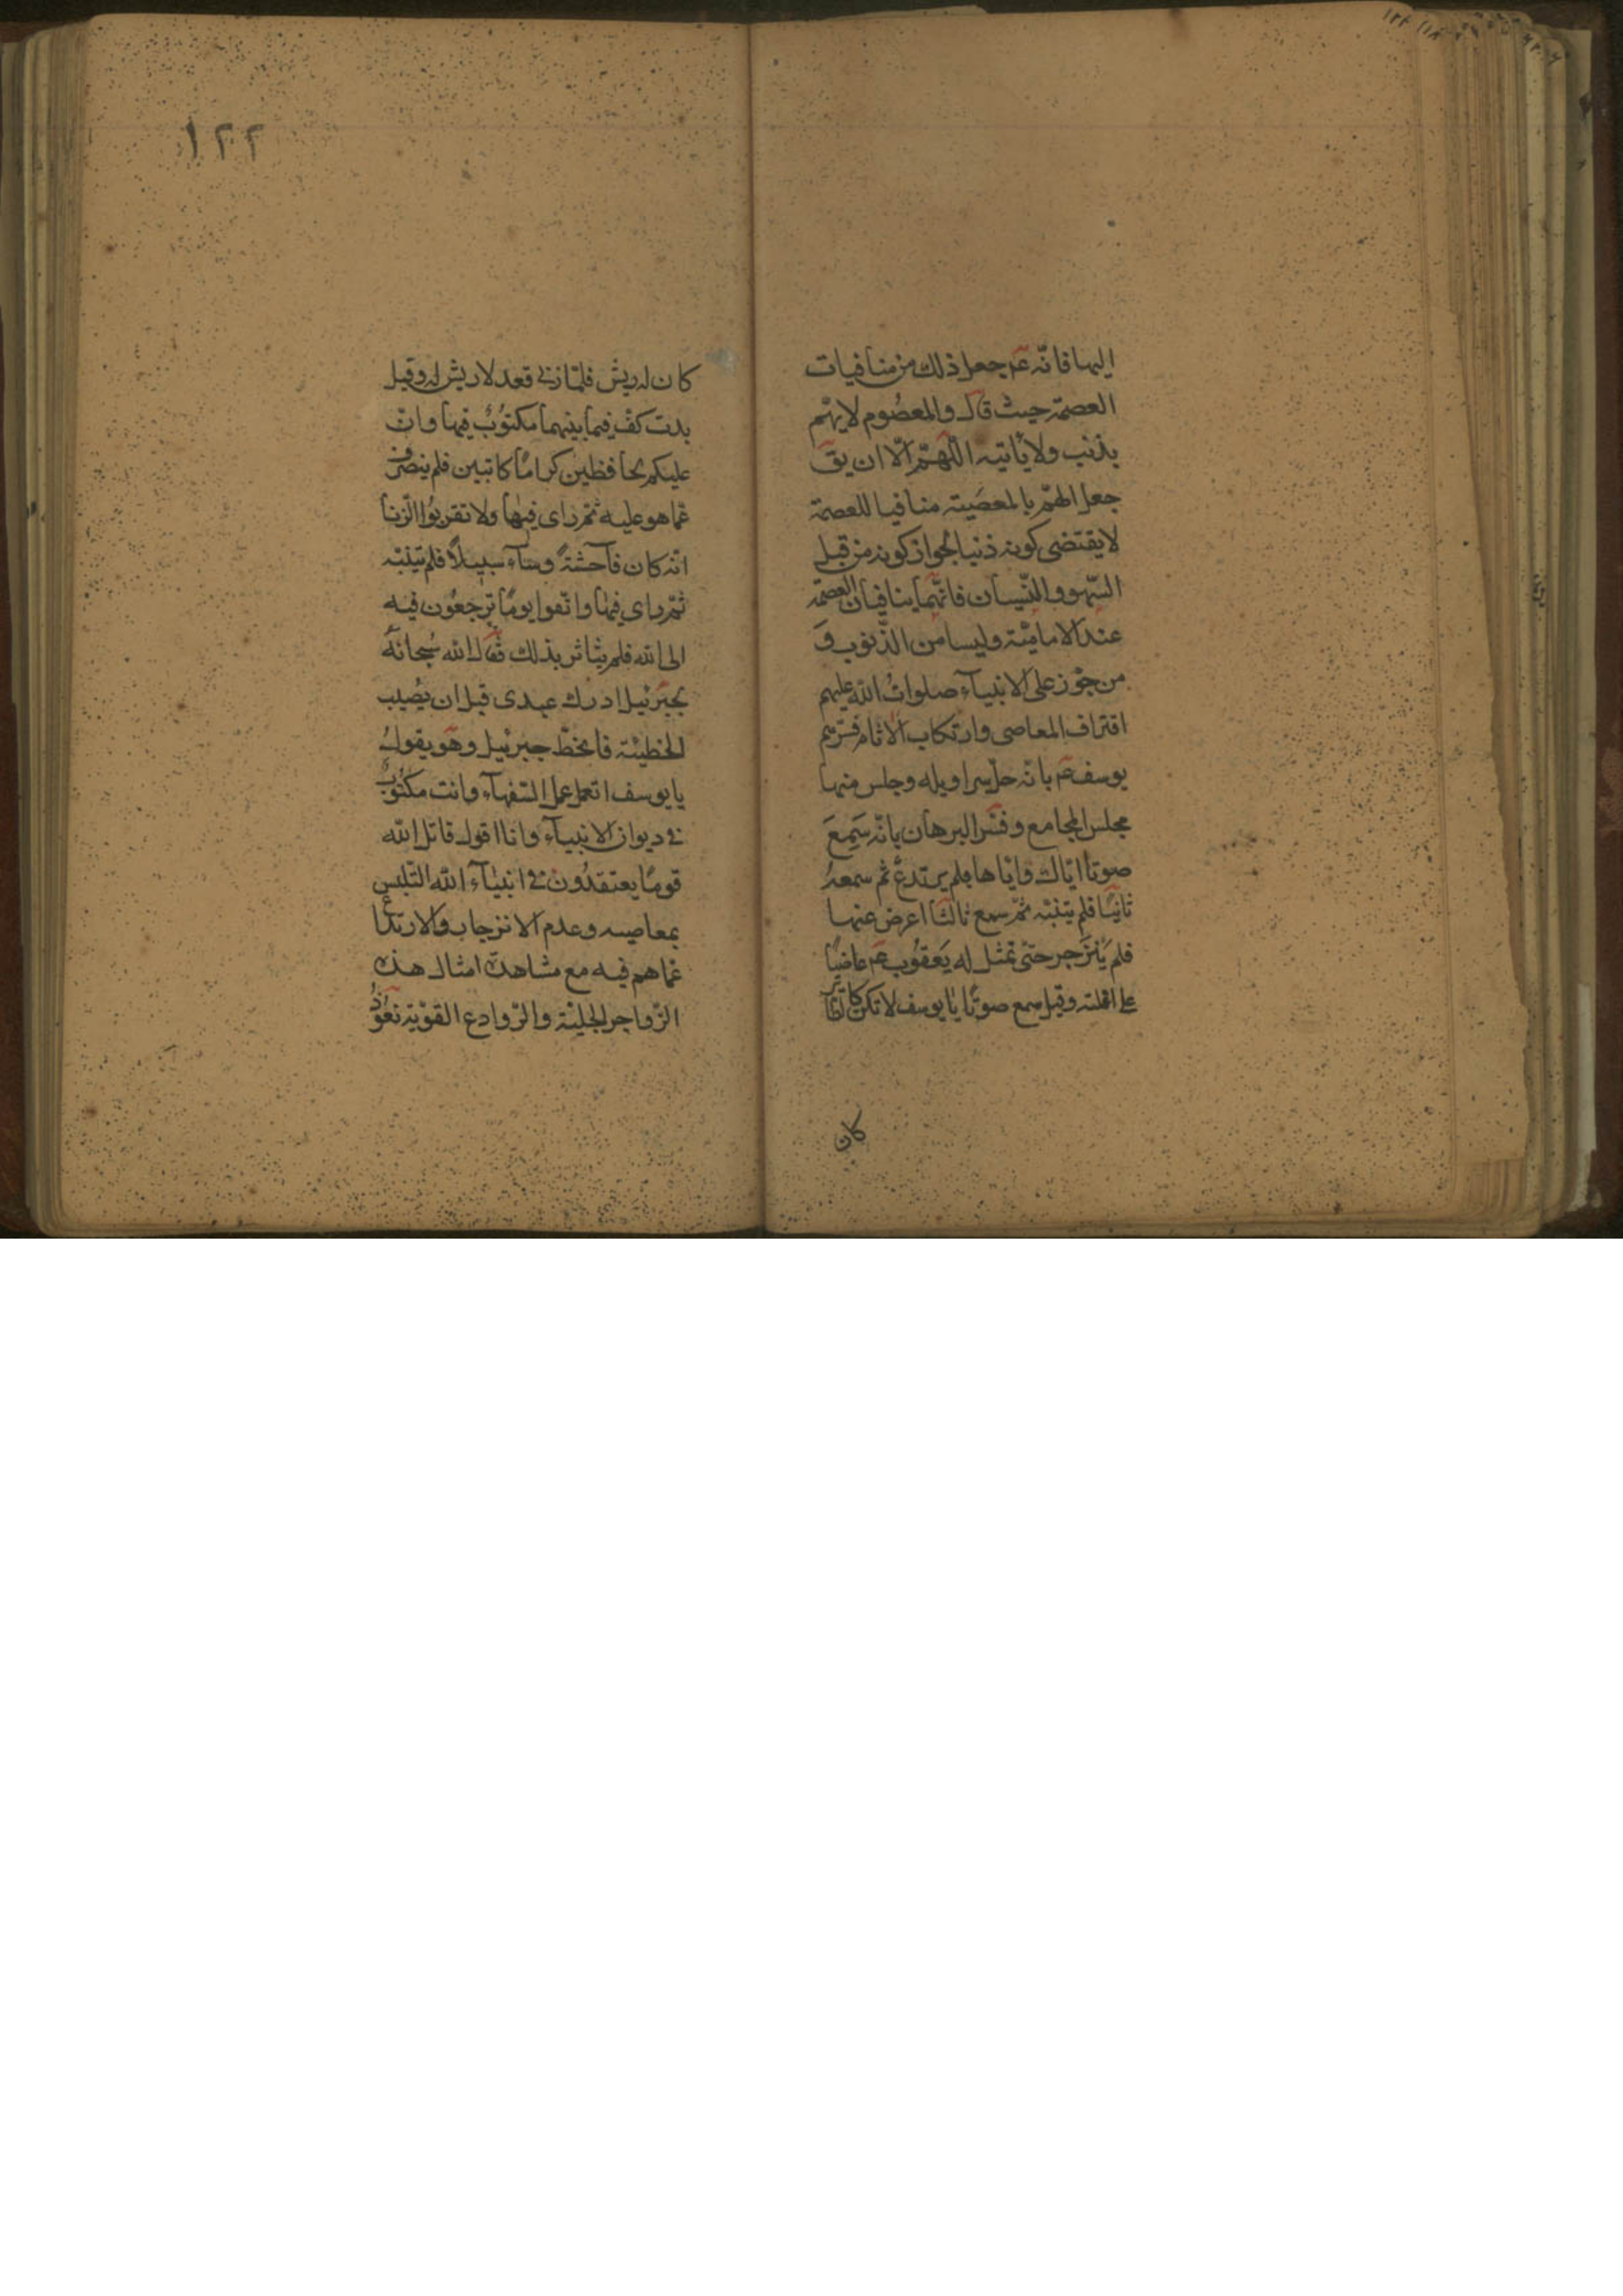 اليها فانّه عم جعل ذلك من منافيات
العصمة حيث قال والمعصُوم لا يهتم
بذنب ولا يأتيه اللّهمّ الّا ان يق
جعل الهمّ بالمعصَية منافيا للعصمة
لا يقتضى كونه ذنبا لجواز كونه من قبل
السّهو والنّسيان فانّهما ينافيان العصمة
عند الاماميّة وليسا من الذّنوب وَ
من جوّز على الانبيآء صلواتُ الله عليهم
اقتراف المعاصى وارتكاب الاثام فسّرهم
يوسف عم بانّه حلّ سراويله وجلس منها
مجلس المجامع وفسّر البرهان بانّه سَمِعَ
صوتا ايّاك وايّاها فلم يرتدعْ ثم سمعهُ
ثانيًا فلم يتنبّه ثمّ سمع ثالثًا اعرض عنها
فلم ينزَجر حتّى تمثّل له يَعقوُب عم عاضيًا
على انملته وقيل سمع صوتًا يا يوسف لا تكن كا لطّاير
كان
١٢٢
كان له ريش فلمّا زنى قعد لا ريش له وقيل
بدت كفّ فيما بينهما مكتوُبٌ فيها وانّ
عليكم لحافظين كرامًا كاتبين فلم ينصرف
عمّا هو عليه ثمّ راى فيها ولا تقربُوا الزّنا
انّه كان فآحشةً وسآء سبيلًا فلم يتنبّه
ثمّ راى فيها واتّقوا يومًا ترجعُون فيه
الى الله فلم يتاثر بذلك فقال الله سُبحانهُ
لجبرَئيل ادرك عبدى قبل ان يصُيب
الخطيئة فانحطّ جبرئيل وهو يقولُ
يا يوسف اتعمل عمل السّفهآء وانت مكتوُبٌ
فى ديوان الانبيآء وانا اقول قاتل الله
قومًا يعتقدُون فى انبيآء الله التّلبس
بمعاصيه وعدم الانزجار والارتداع
عمّا هم فيه مع مشاهدة امثال هذه
الزّواجر الجليّة والرّوادع القويّة نعُوذُ